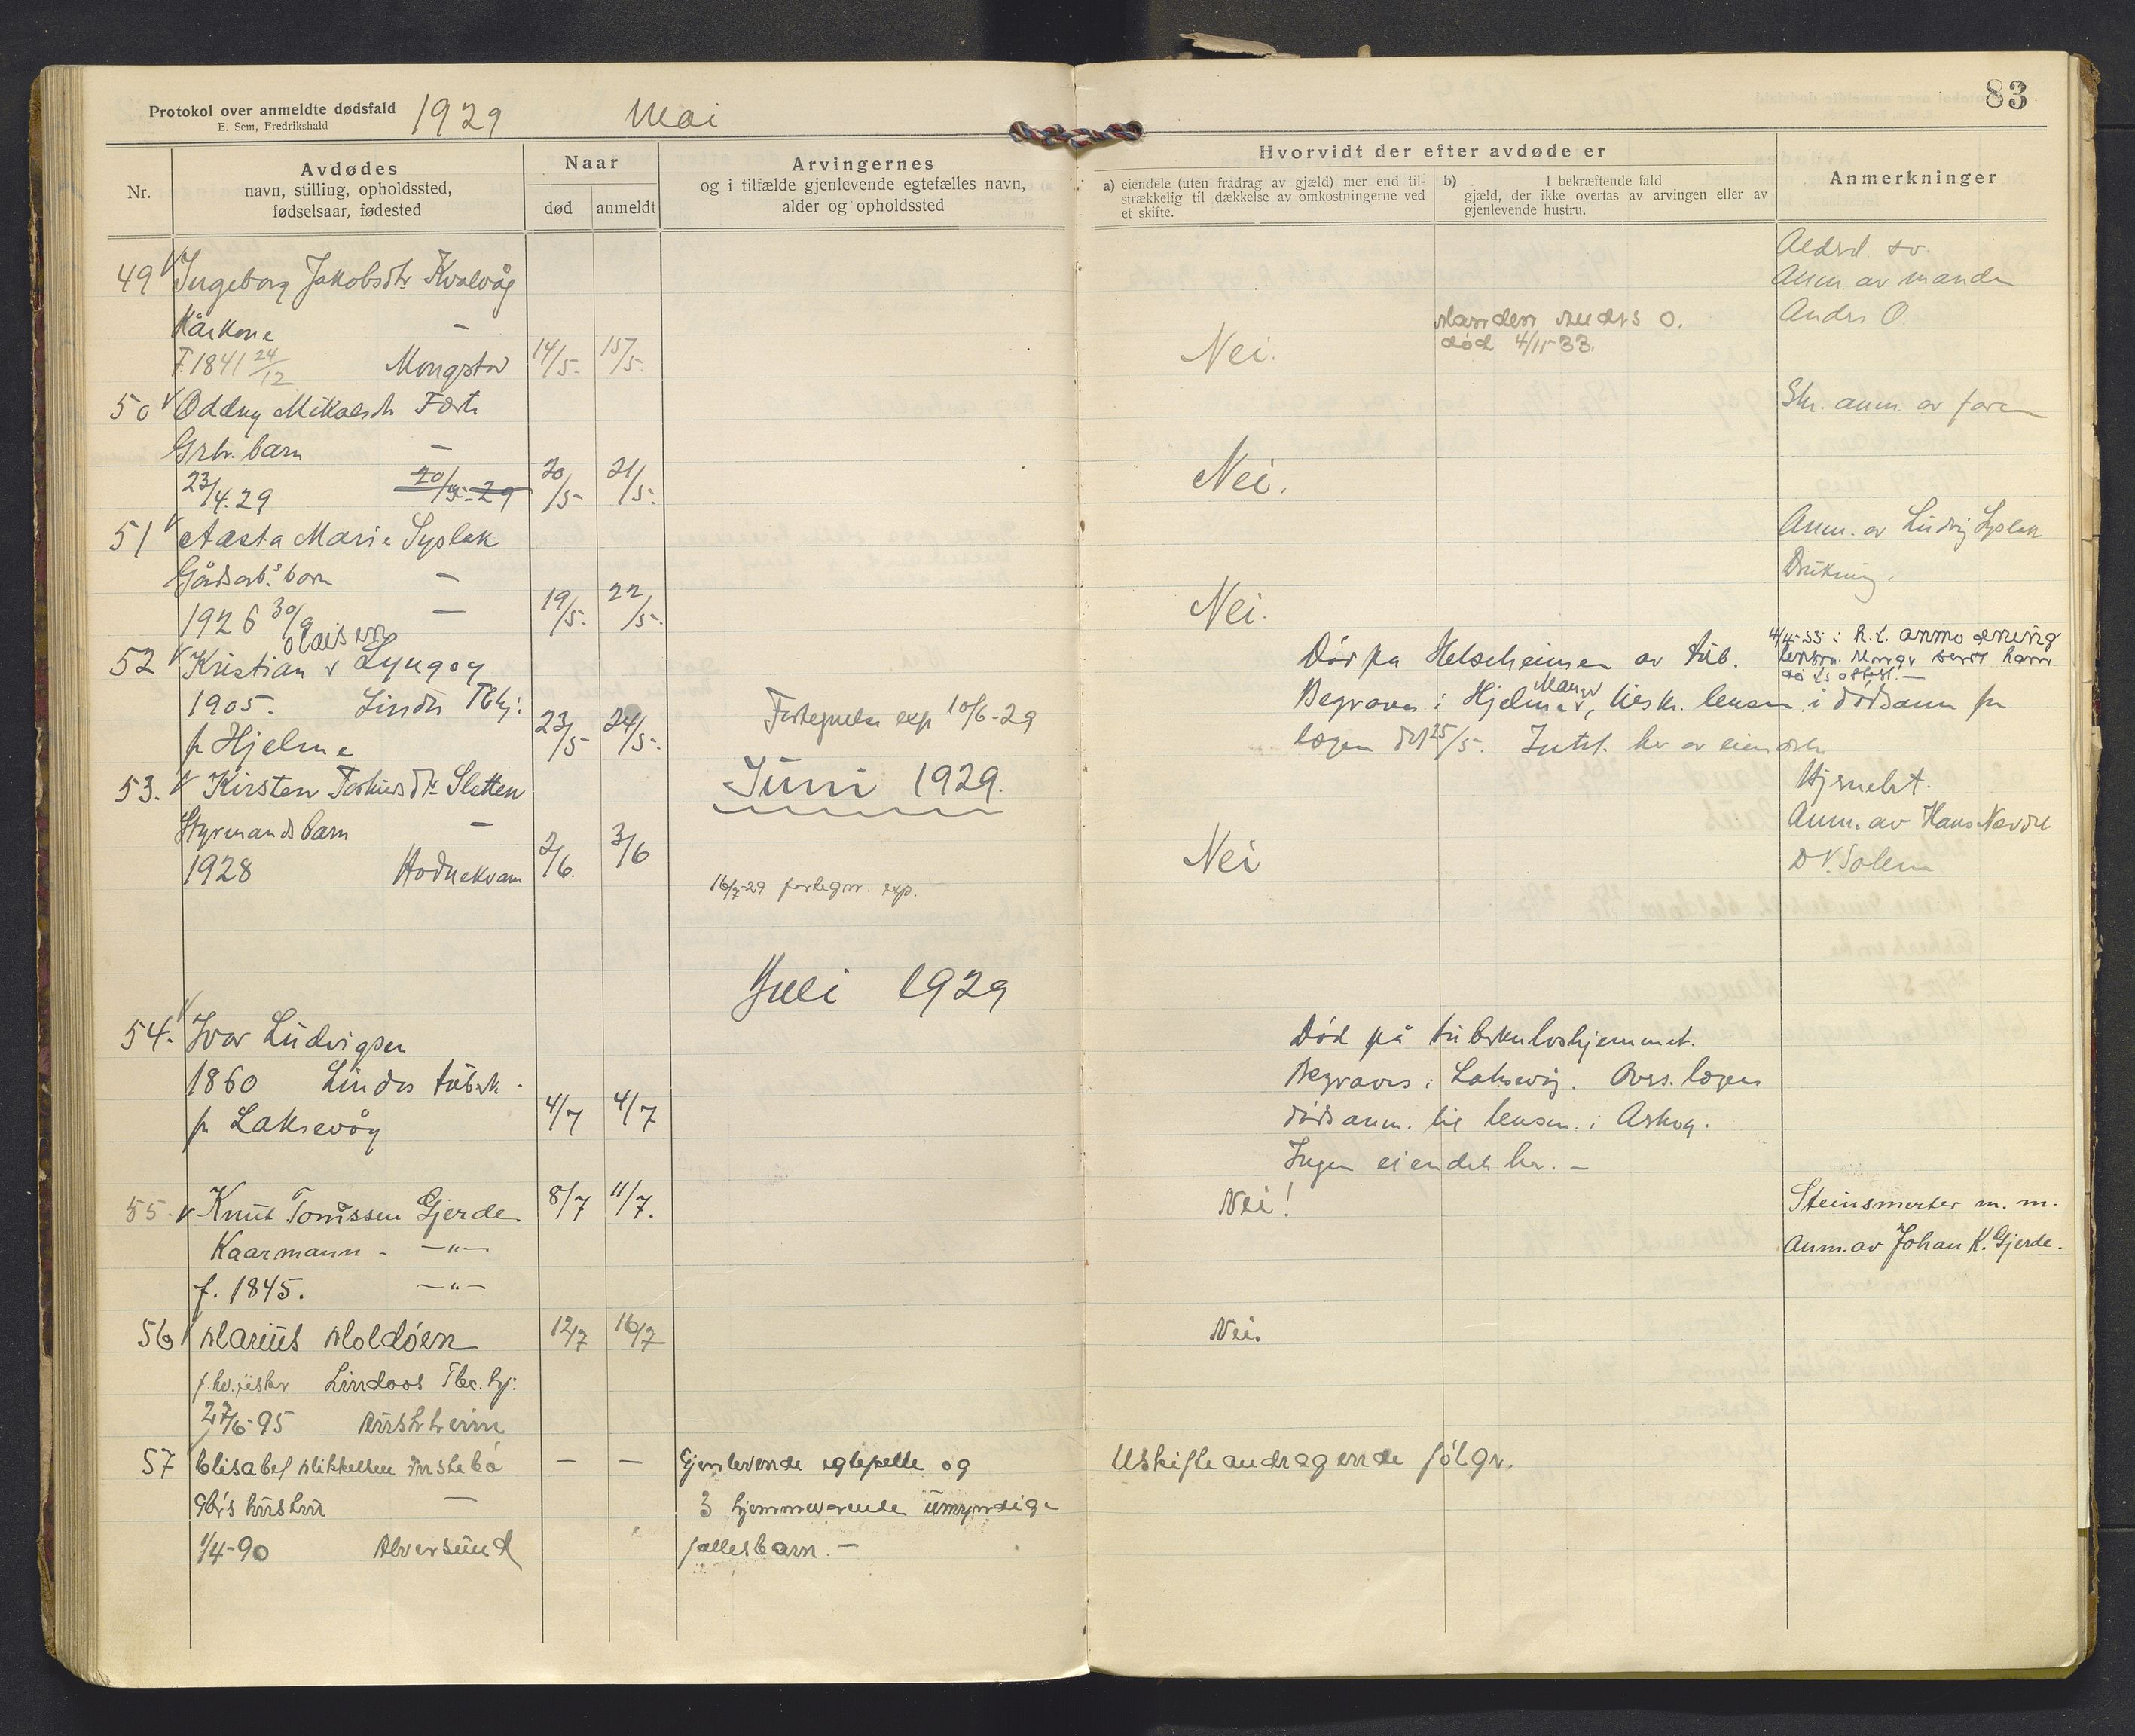 Protokol over anmeldte dødsfald
E. Sem, Fredrikshald
1929 Mai
83
Nr.
Avdødes
navn, stilling, opholdssted,
fødselsaar, fødested
Naar
død
anmeldt
Arvingernes
og i tilfælde gjenlevende egtefælles navn,
alder og opholdssted
Hvorvidt der efter avdøde er
a) eiendele (uten fradrag av gjæld) mer end til-
strækkelig til dækkelse av omkostningerne ved
et skifte.
b) I bekræftende fald
gjæld, der ikke overtas av arvingen eller av
gjenlevende hustru.
Anmerkninger
49 Ingeborg Jakobsdtr Kvalvåg
Kårkone —
F. 1841 24/12 Mongstad 14/5- 15/5-
Nei.
Manden Anders O.
død 4/11-33.
Anm. av manden
Anders O.
50 Oddny Mikalsdtr
Grbr. barn —
23/4.29 20/5-29 20/5- 21/5-
Nei.
Skr. anm. av faren
51 Aasta Marie Syslak
Gårdsarb.s barn —
1926 30/9 — 19/5- 22/5-
Nei.
Anm. av Ludvig Syslak
Drukning.
52 Kristian Olaisen Lyngøy
1905. Lindås Tbhj:
fr Hjelme 23/5- 24/5-
Fortegnelse exp 10/6-29
Død på Helseheimen av tub.
Begraves i Hjelme, Manger, lensm. i dødsanm fr
lægen 25/5.
4/4-33:
53. Kirsten Sletten
Styrmands barn —
1928 Hodnekvam 2/6. 3/6
Juni 1929.
Nei
Anm. av Hans Nævdal
D V. Solem
16/7-29 fortegn. exp.
Juli 1929
54. Ivar Ludvigsen
1860 Lindås tubrk.
fr Laksevåg 4/7 4/7
Død på tuberkuloshjemmet.
Begraves i Laksevåg. Overs. lægens
dødsanm. til lensm. i Askøy.
Ingen eiendele her. —
55. Knut Tomssen Gjerde. 8/7 11/7.
Kaarmann - —"—
f. 1845. —"—
Nei!
Steinsmerter m. m.
Anm. av Johan K. Gjerde.
56 Marius Moldøen 12/7 16/7
Lindaas Tbc. hj:
27/6-95 Austrheim
Nei.
57 Elisabet Mikkelsen — —
gbr's hustru —
1/4-90 Alversund
Gjenlevende egtefelle og
3 hjemmeværende umyndige
fællesbarn. —
Uskifteandragende følger.